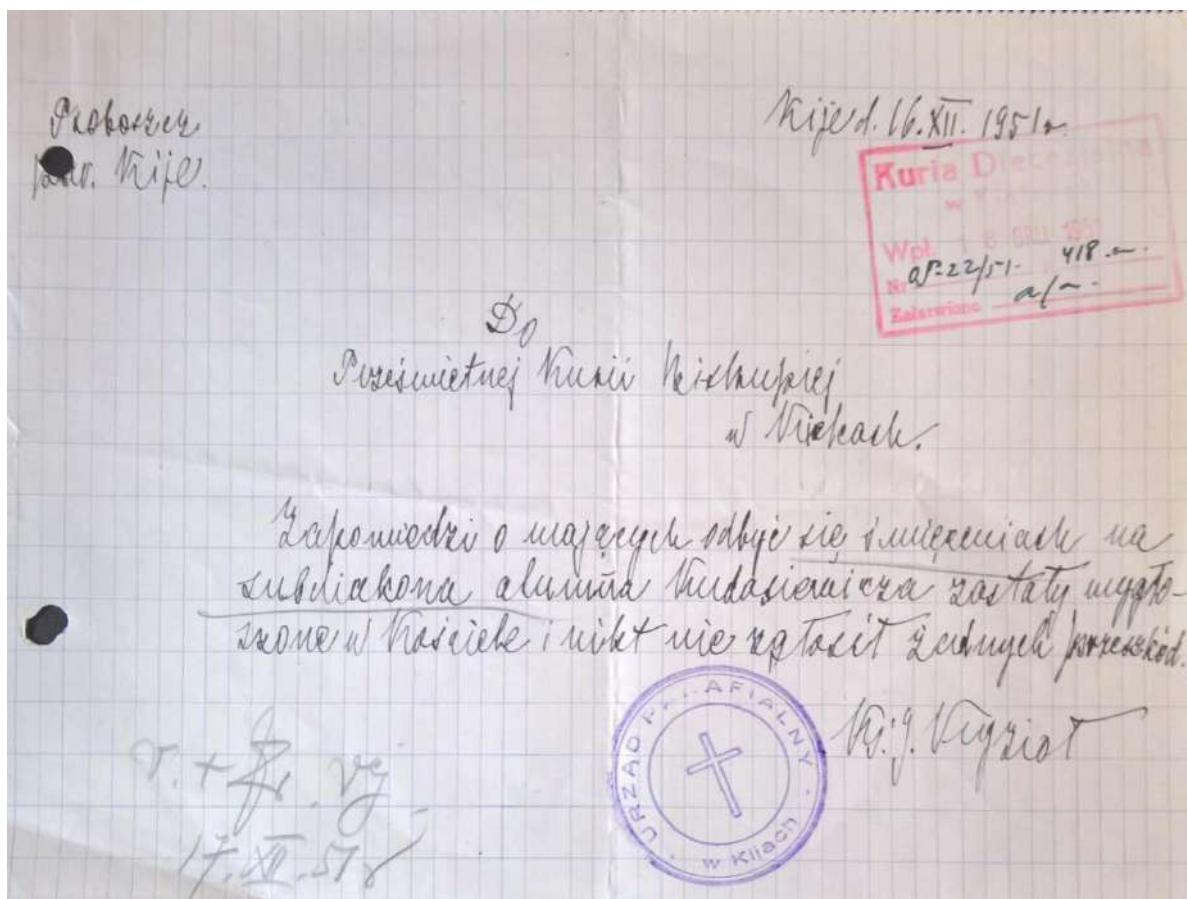 Proboszcz
par. Kije.
Kije d. 16.XII. 1951 r.
Kuria Diecezjalna
w Kielcach
Wpł. 18 GRU. 1951
Nr 22/51. 418
Załatwiono
Do
Prześwietnej Kurii Biskupiej
w Kielcach.
Zapowiedzi o mających odbyć się święceniach na
subdiakona alumna Kudasiewicza zostały wygło-
szone w Kościele i nikt nie zgłosił żadnych przeszkód.
Ks. J.
URZĄD PARAFIALNY
w Kijach
17.XII.51